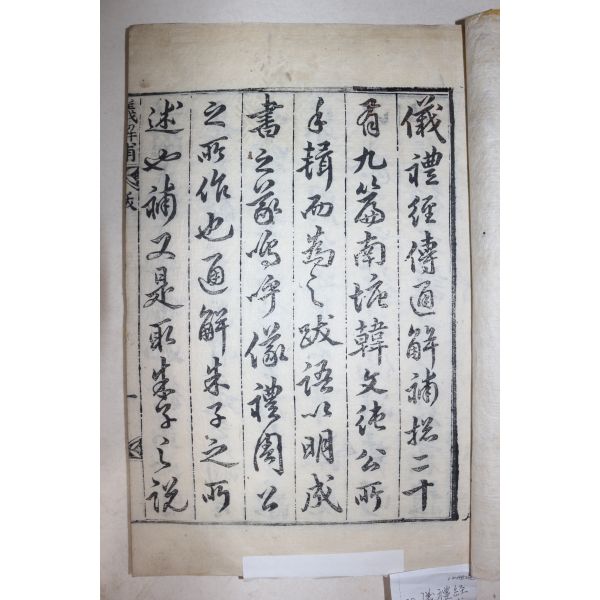 儀禮經傳通解補摠二十
有九篇南塘韓文純公所
手輯而爲之跋語以明成
書之義嗚呼儀禮周公
之所作也通解朱子之所
述也補又是取朱子之說
儀解補
跋
一